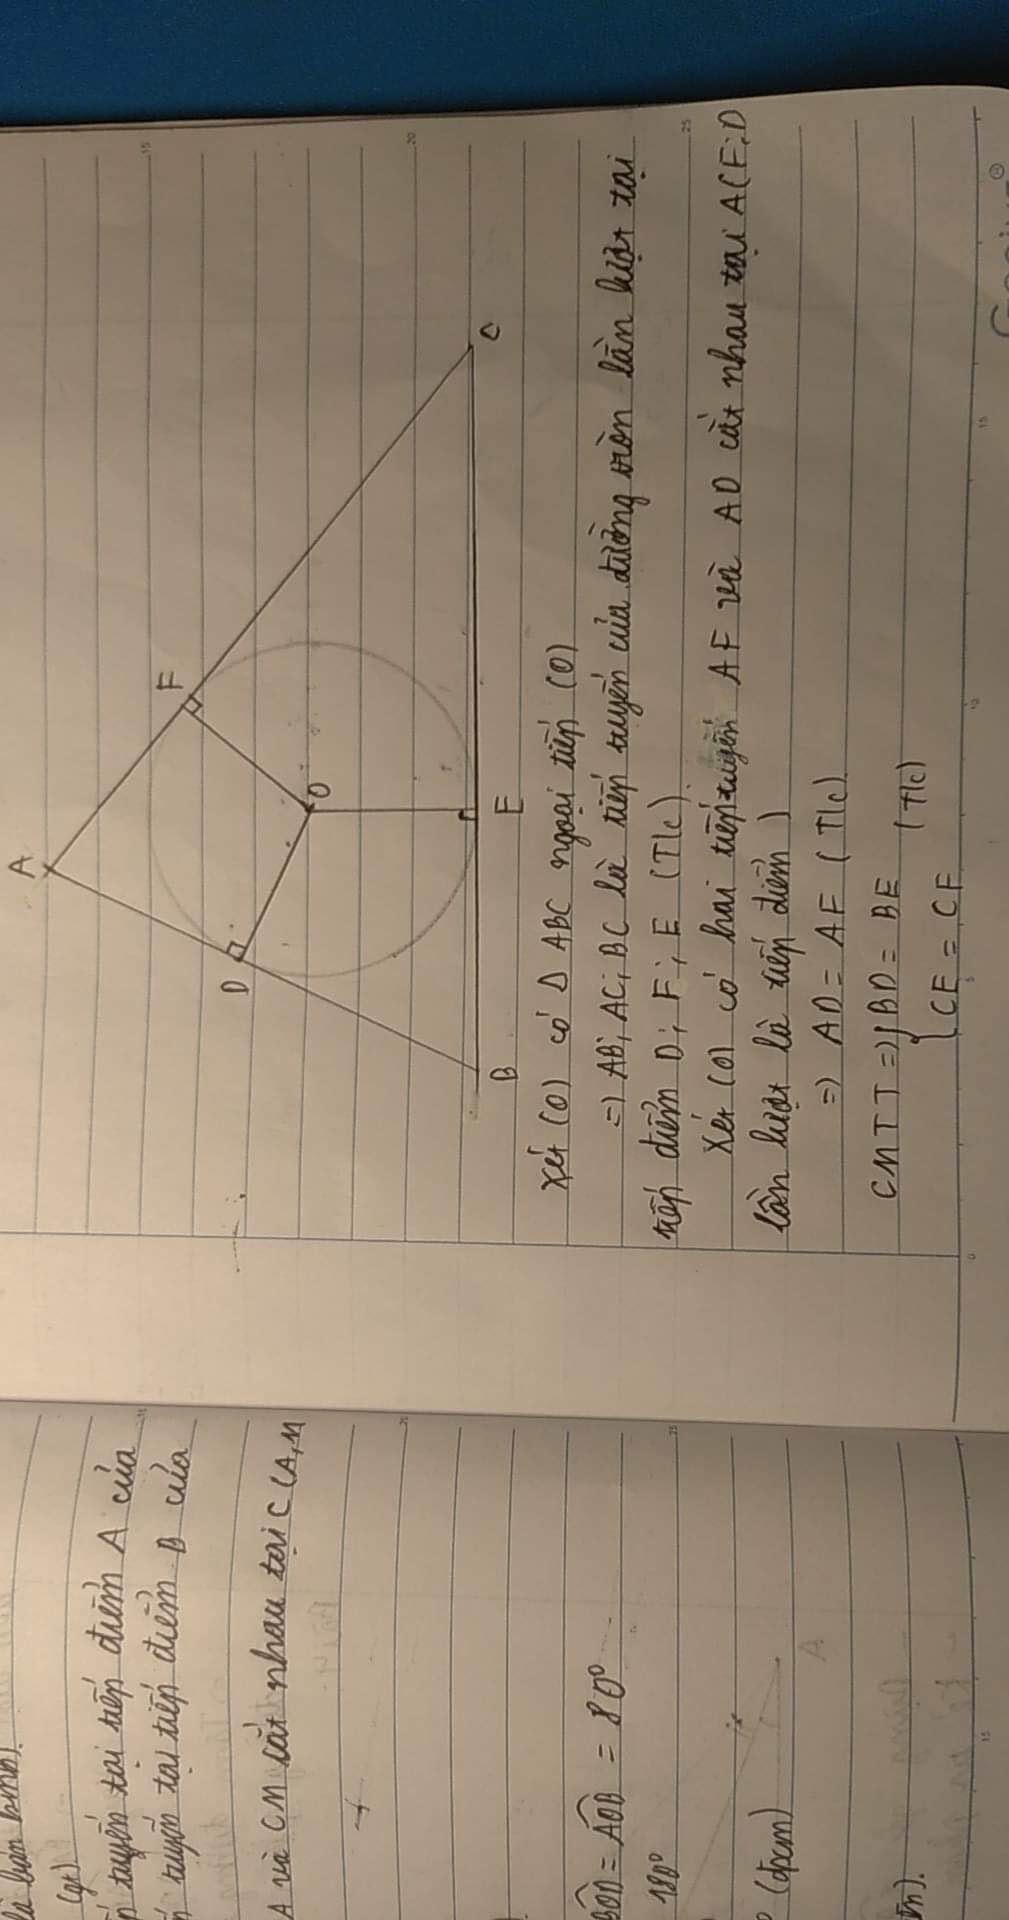 A
F
D
O
B
E
C
Xét (O) có Δ ABC ngoại tiếp (O)
=) AB; AC; BC là tiếp tuyến của đường tròn lần lượt tại
tiếp điểm D; F; E (T/c).
Xét (O) có hai tiếp tuyến AF và AD cắt nhau tại A (F; D
lần lượt là tiếp điểm)
=) AD = AF (T/c)
CMTT =) { BD = BE
CE = CF (T/c)
là bán kính)
(gt)
tuyến tại tiếp điểm A của
tuyến tại tiếp điểm B của
A và CM cắt nhau tại C (A, M
BOD = AOB = 80°
180°
(đpcm)
15
20
25
0
5
10
15